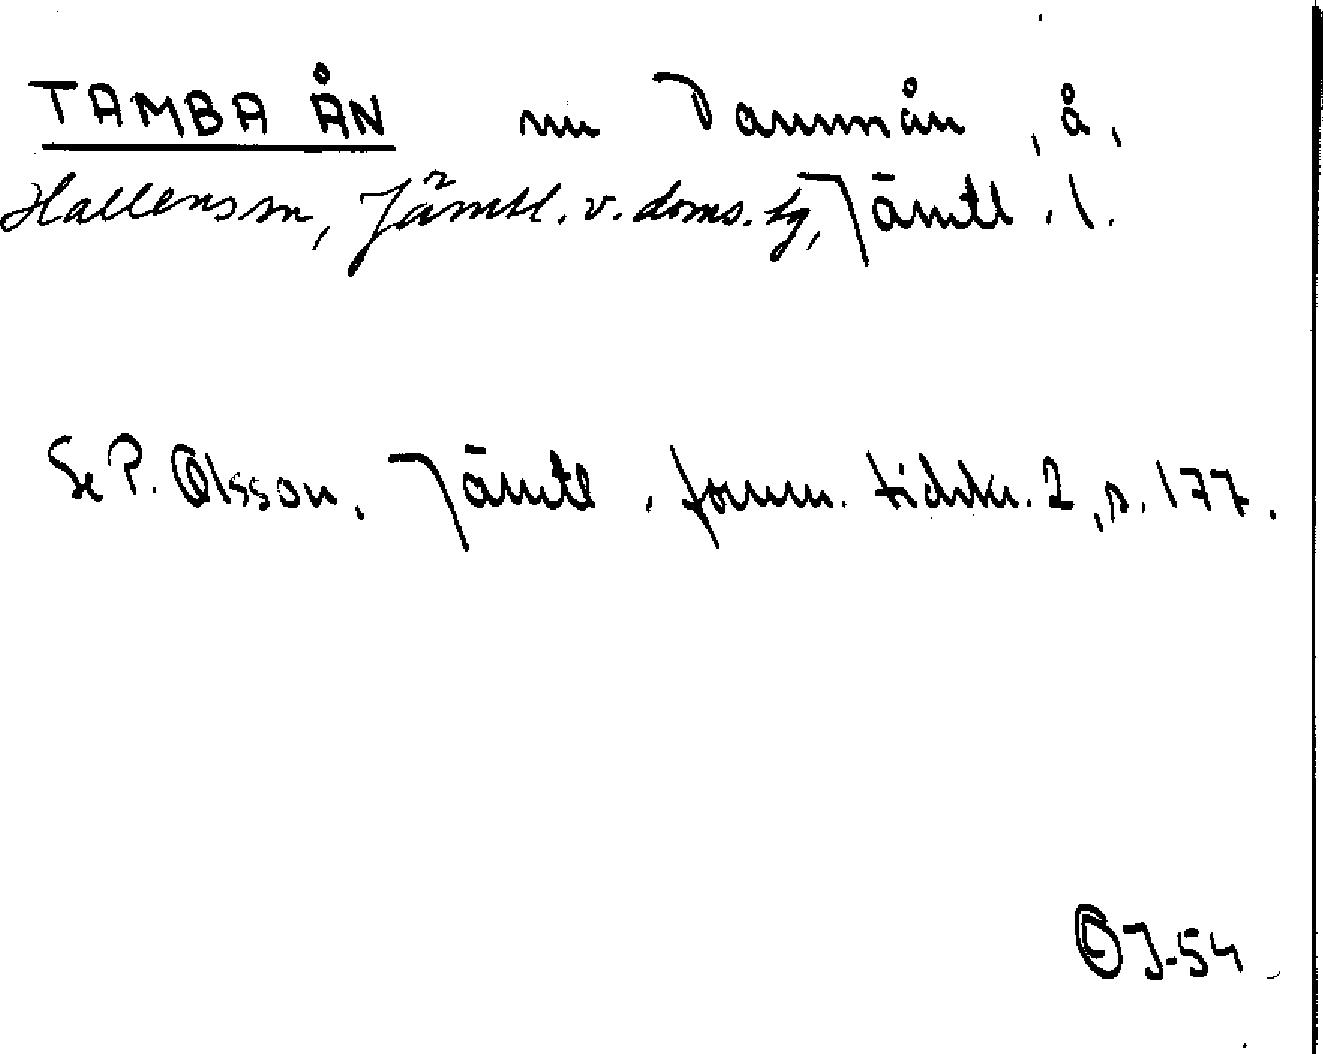 TAMBA ÅN nu Dammån, å,
Hallens sn, Jämtl. v. doms. tg, Jämtl. l.
Se P. Olsson, Jämtl. fornm. tidskr. 2, s. 177.
J-54